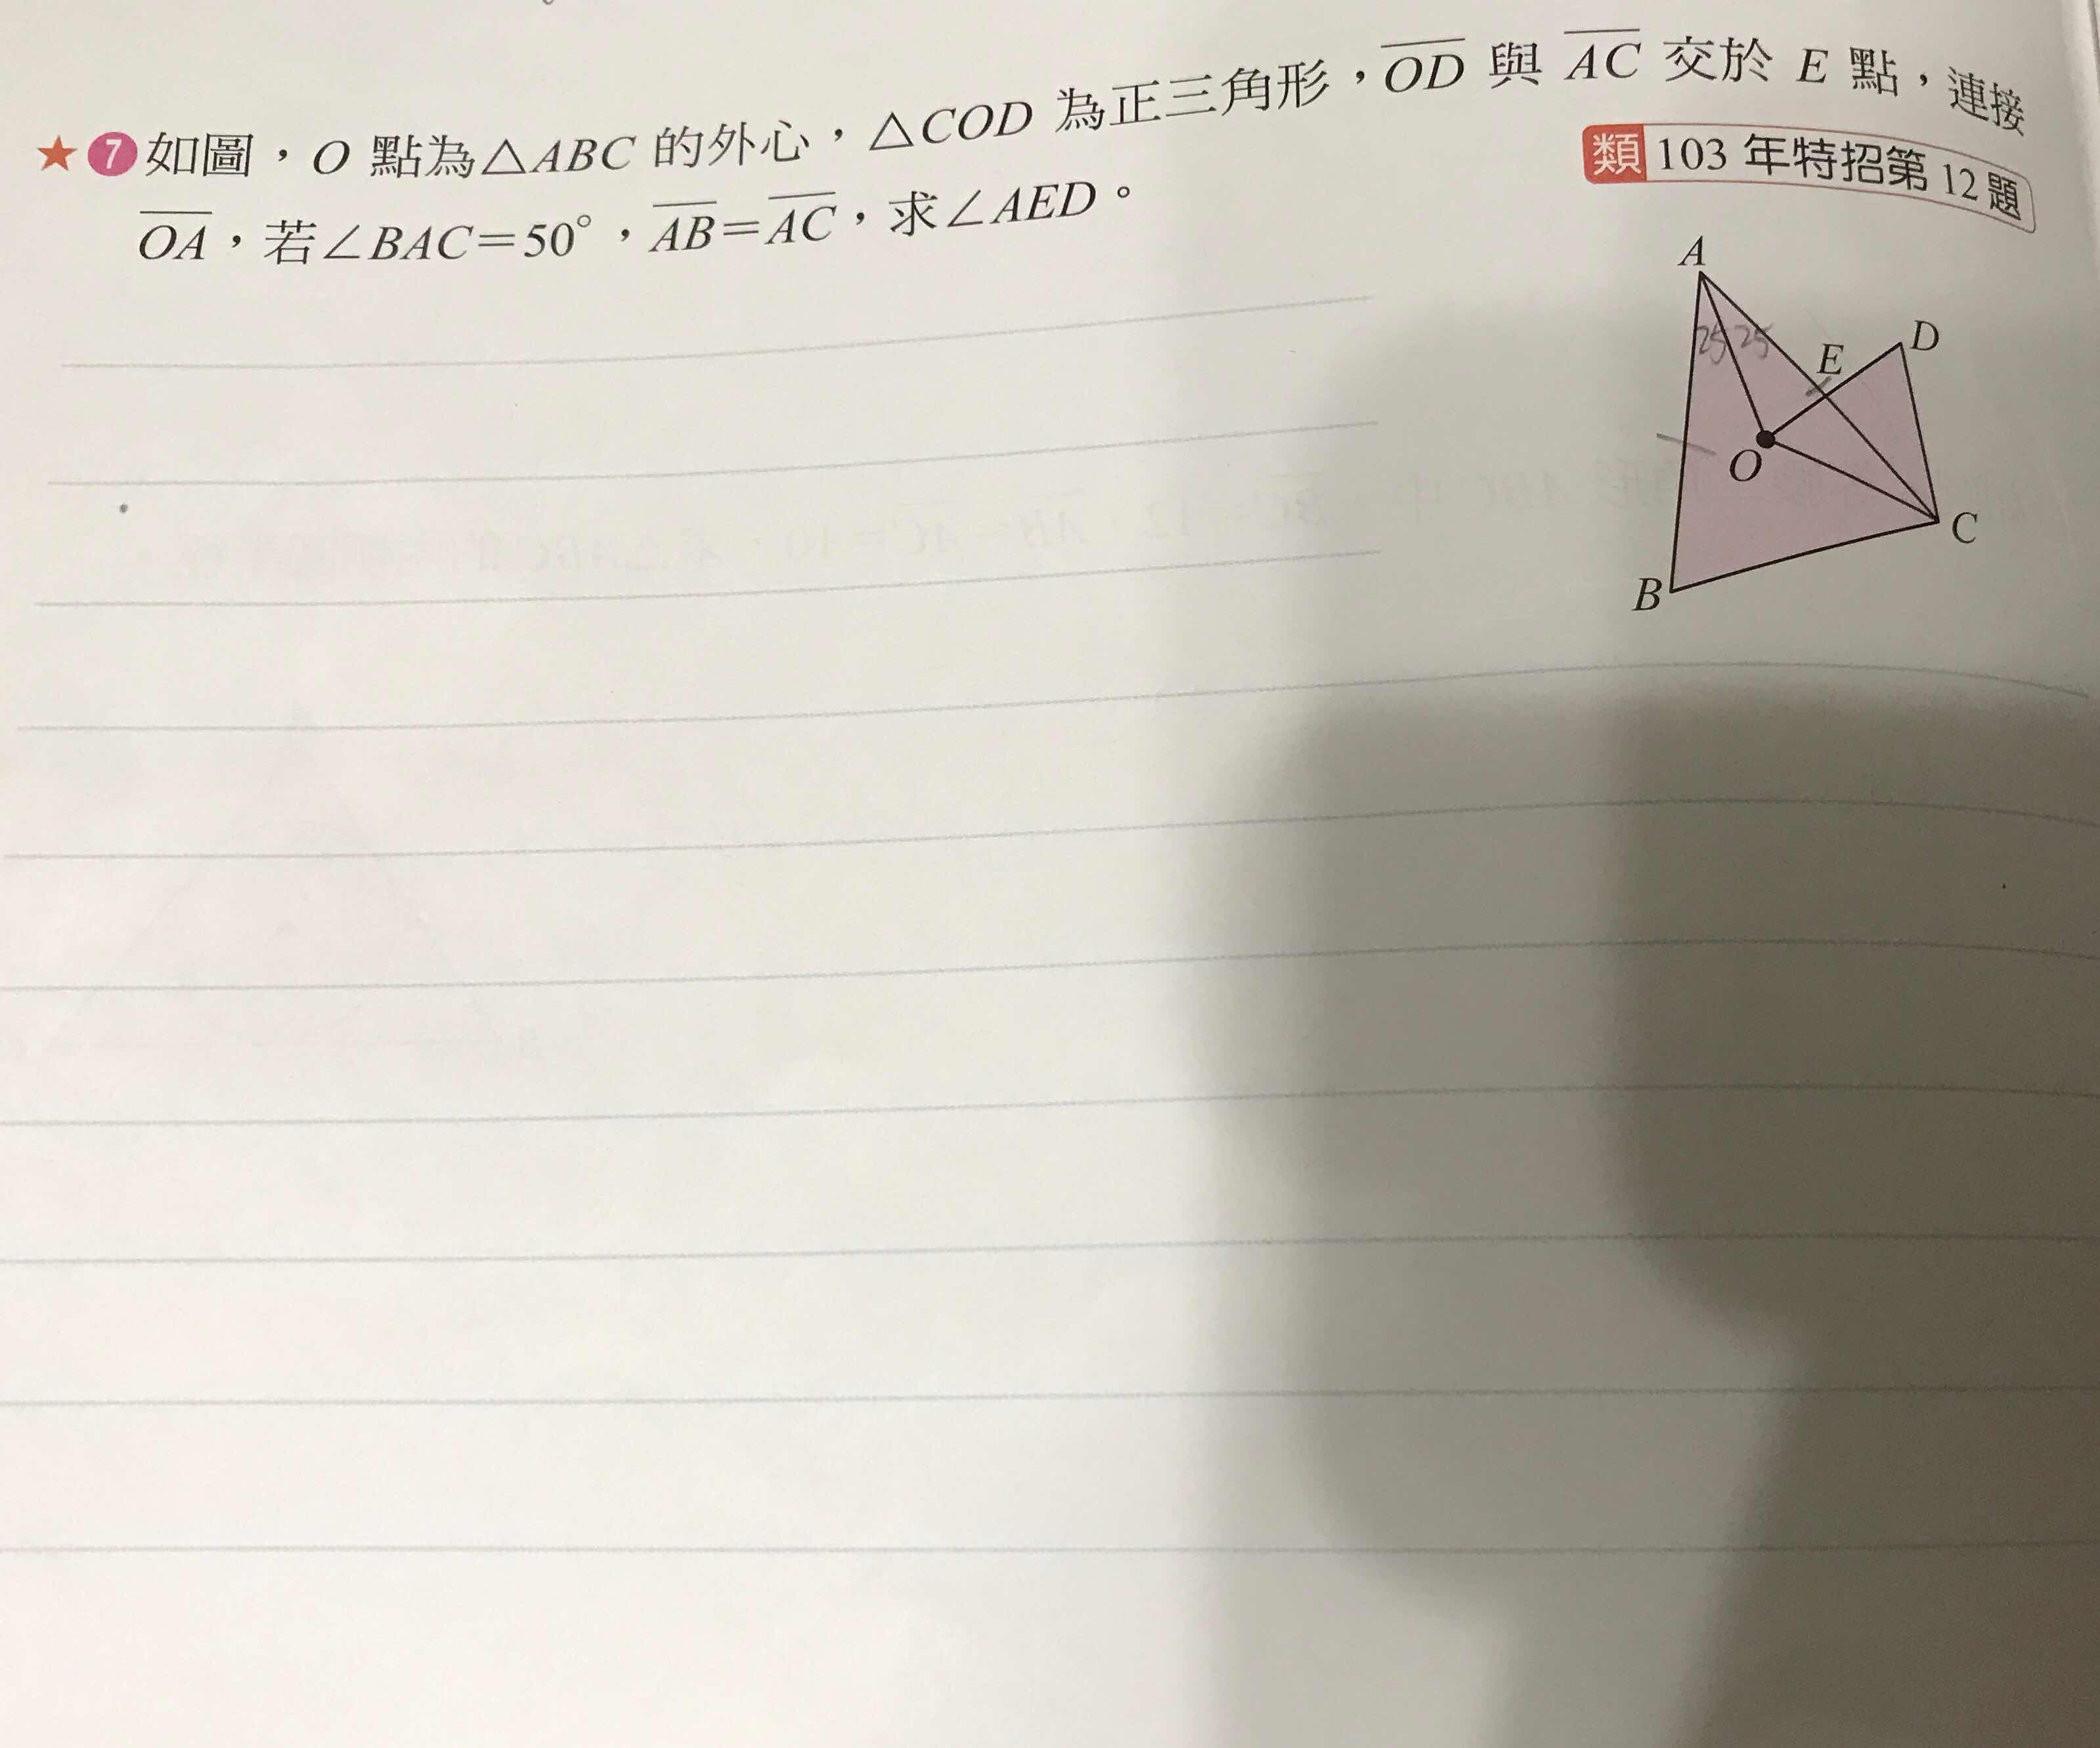 ★7如圖，O 點為△ABC 的外心，△COD 為正三角形，OD 與 AC 交於 E 點，連接
OA，若∠BAC=50°，AB=AC，求∠AED。
類 103 年特招第 12 題
A
25 25
D
E
O
C
B